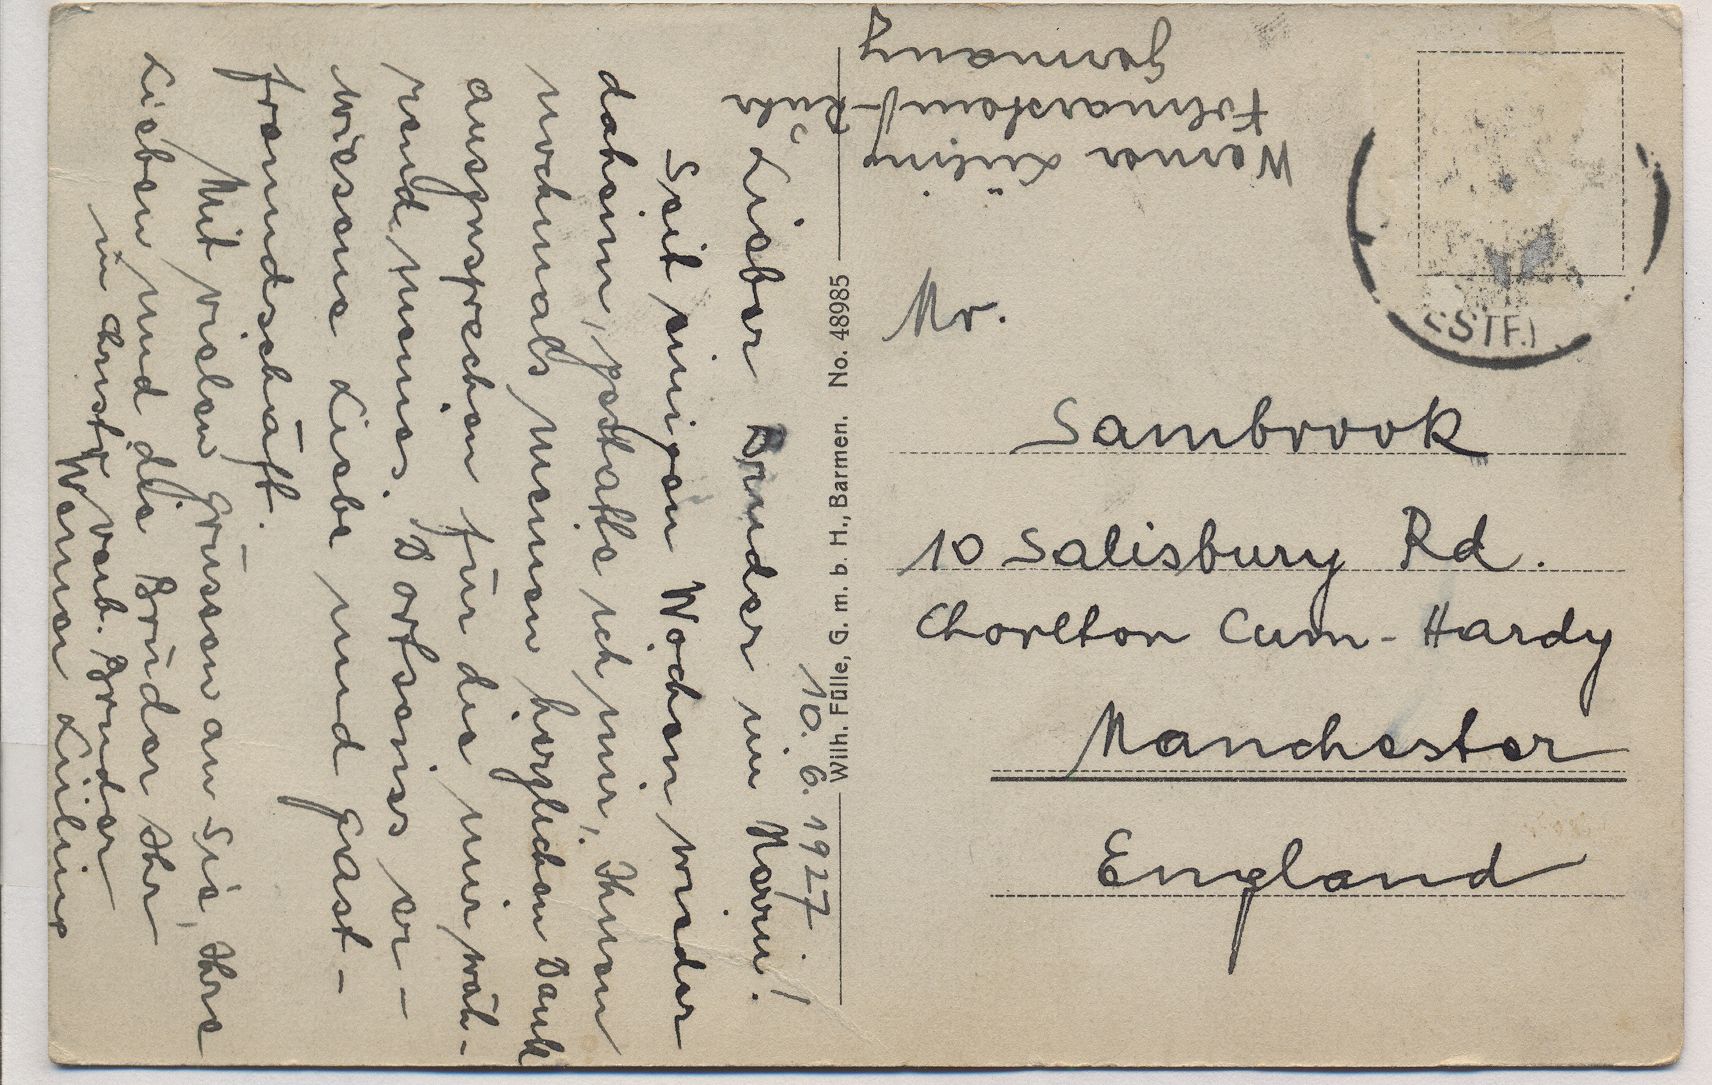 10. 6. 1927
Lieber Bruder im Herrn!
Seit einigen Wochen wieder
daheim, gestatte ich mir, Ihnen
nochmals meinen herzlichen Dank
auszusprechen für die mir wäh-
rend meines Dortseins er-
wiesene Liebe und Gast-
freundschaft.
Mit vielen Grüssen an Sie, Ihre
Lieben und die Brüder Ihr
in Christo verb. Bruder
Werner Lüling
Wilh. Fülle, G. m. b. H., Barmen. No. 48985
Werner Lüling
Volmarstein/-Ruhr
Germany
ESTF.)
Mr.
Sambrook
10 Salisbury Rd.
Chorlton Cum-Hardy
Manchester
England